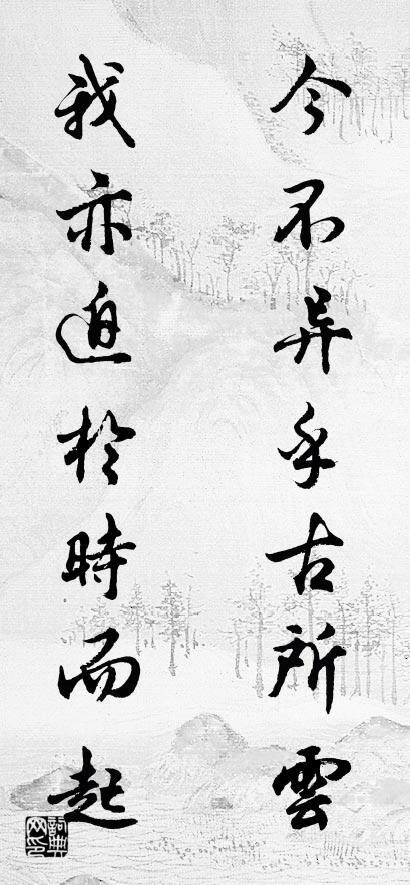 今不异乎古所雲
我亦迫於時而起
詞典网印